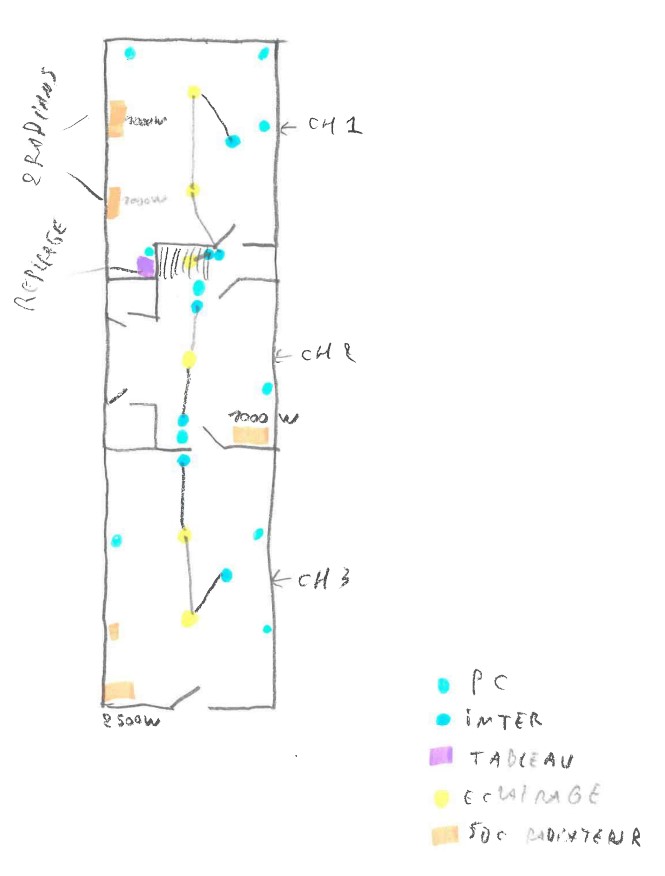 2 RADIANS
CH 1
1000W
1000W
REPERAGE
CH 2
1000 W
CH 3
2500W
PC
iNTER
TABLEAU
ECLAIRAGE
SDC RADIATEUR